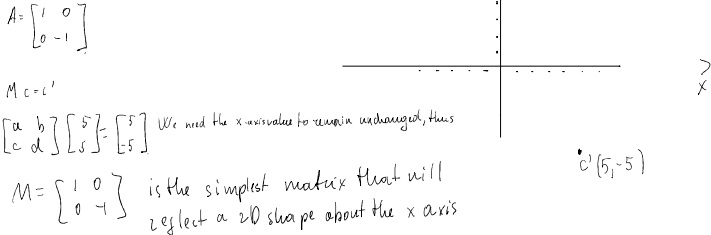 A = [1 0
0 -1]
M c = c'
[a b
c d] [5
5] = [5
-5] We need the x-axis value to remain unchanged, thus
M = [1 0
0 -1] is the simplest matrix that will
reflect a 2D shape about the x axis
x
c'(5,-5)